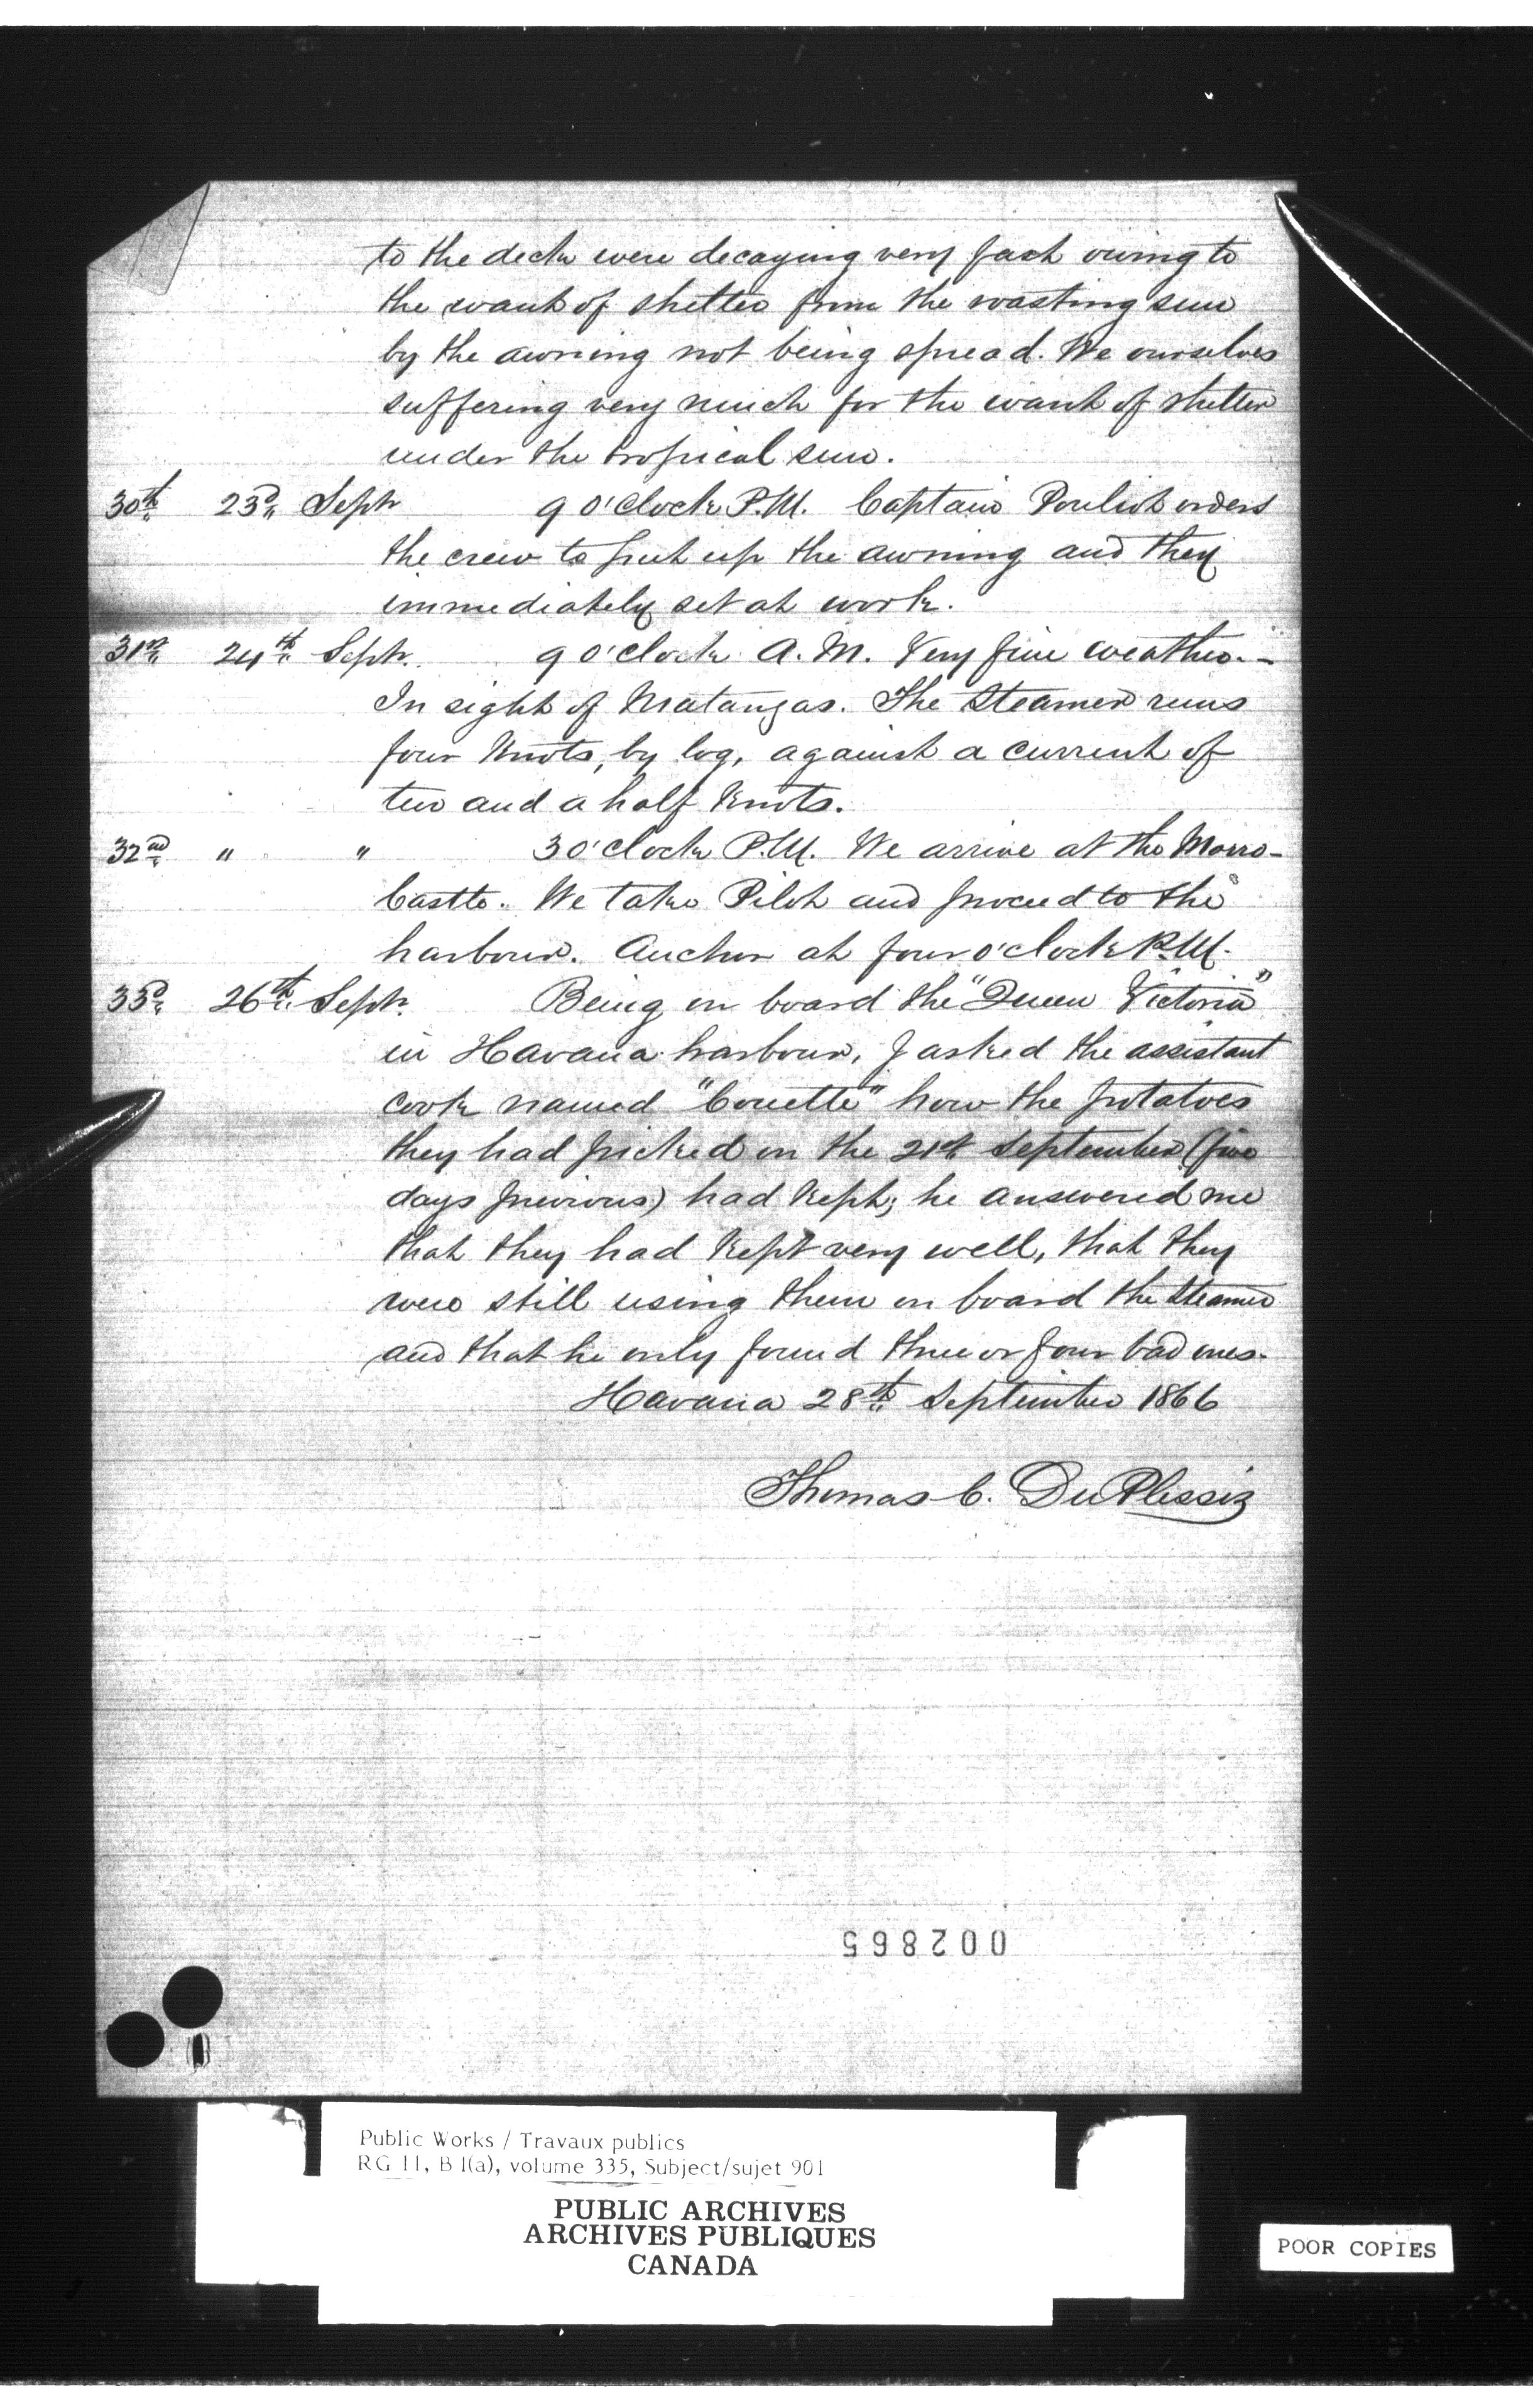 to the deck were decaying very fast owing to
the want of shelter from the roasting sun
by the awning not being spread. We ourselves
suffering very much for the want of shelter
under the tropical sun.
30th 23d Sept 9 o'Clock P.M. Captain Pouliot orders
the crew to put up the awning and they
immediately set at work.
31st 24th Sept. 9 o'clock A.M. Very fine weather.-
In sight of Matanzas. The Steamer runs
four Knots, by log, against a current of
two and a half Knots.
32nd " " 3 o'clock P.M. We arrive at the Morro-
Castle. We take Pilot and proceed to the
harbour. Anchor at four o'clock P.M.
33d 26th Sept. Being on board the "Queen Victoria"
in Havana harbour, I asked the assistant
cook named "Couette" how the potatoes
they had picked on the 21st September (five
days previous) had Kept; he answered me
that they had Kept very well, that they
were still using them on board the Steamer
and that he only found three or four bad ones.
Havana 28th September 1866
Thomas C. DuPlessis
002865
Public Works / Travaux publics
RG 11, B 1(a), volume 335, Subject/sujet 901
PUBLIC ARCHIVES
ARCHIVES PUBLIQUES
CANADA
POOR COPIES